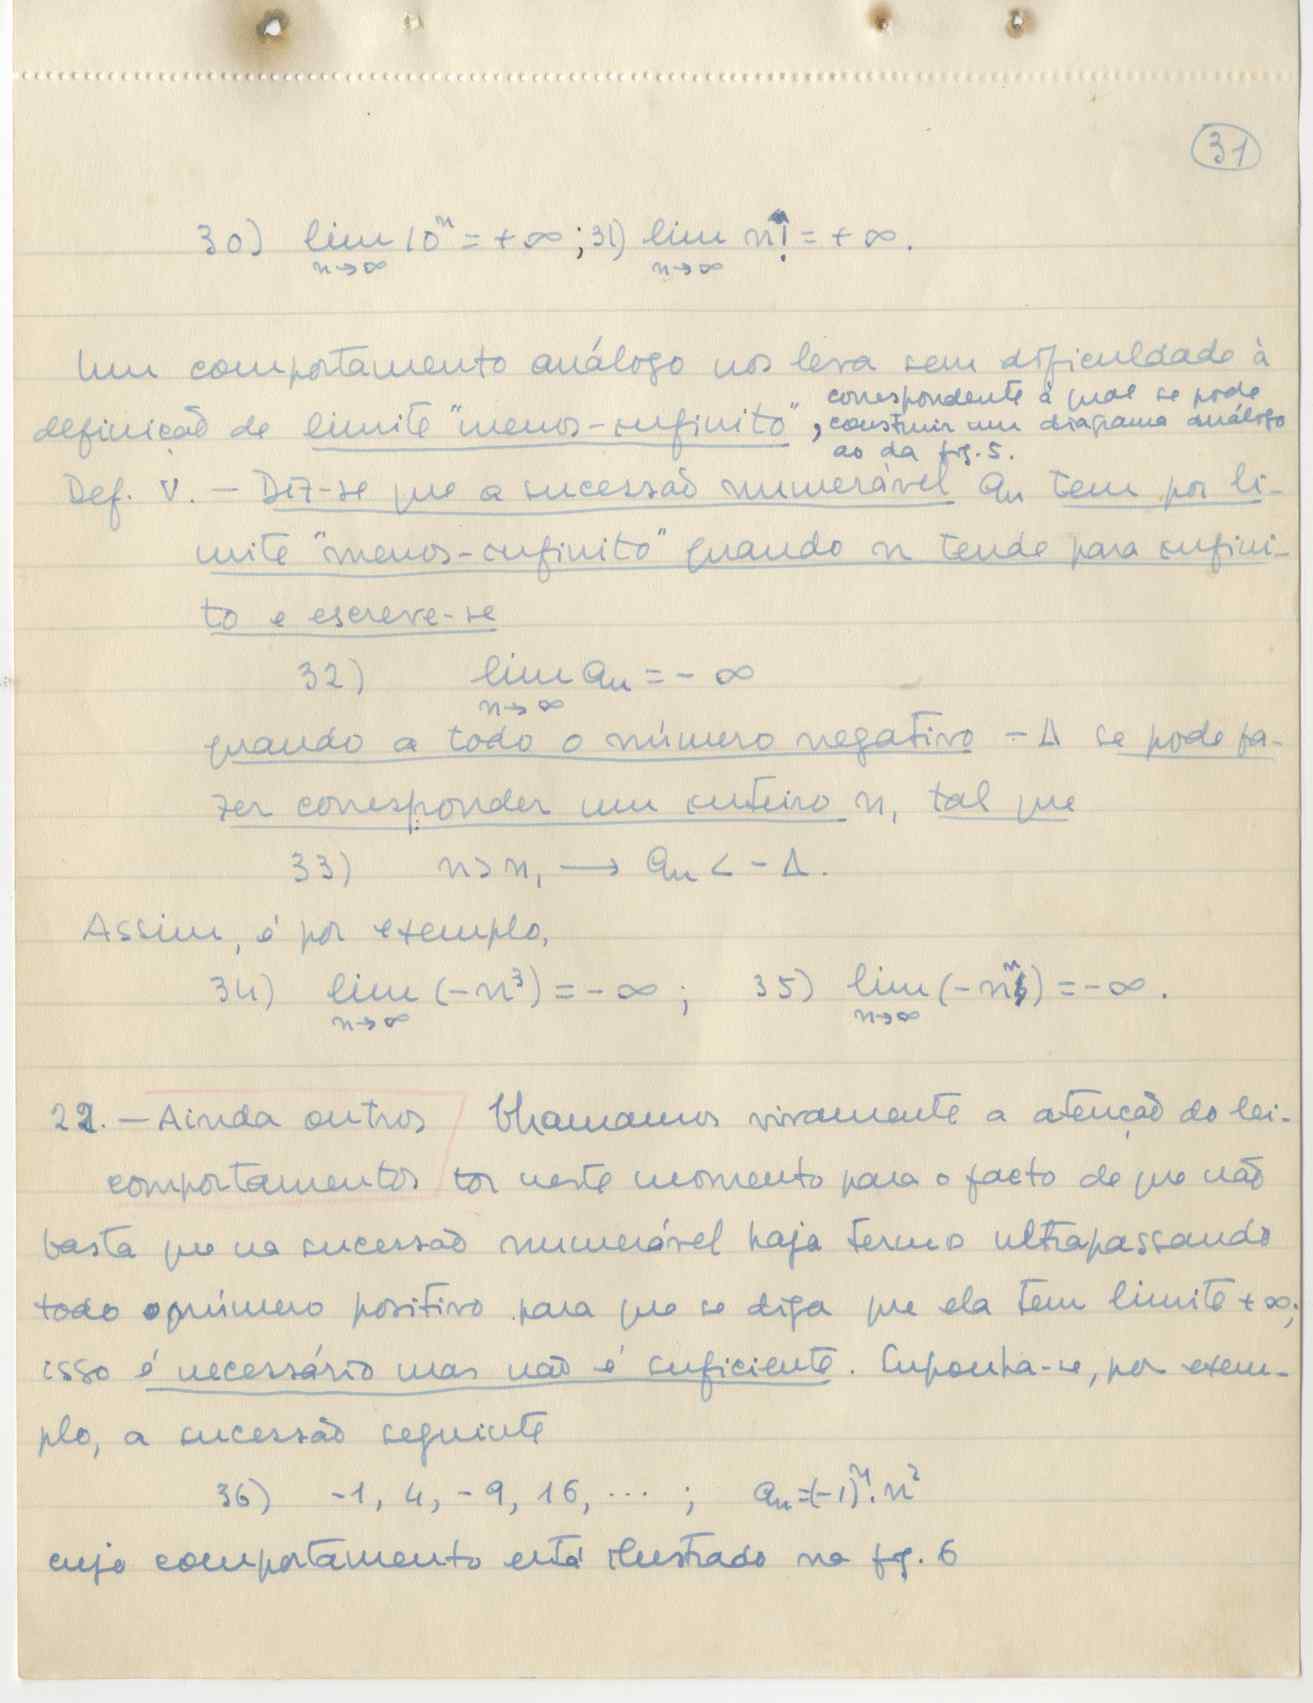 31
30) lim 10ⁿ = + ∞ ; 31) lim n! = + ∞.
n→∞ n→∞
Um comportamento análogo nos leva sem dificuldade à
definição de limite "menos-infinito", correspondente à qual se pode
construir um diagrama análogo
ao da fig. 5.
Def. V. — Diz-se que a sucessão numerável aₙ tem por li-
mite "menos-infinito" quando n tende para infini-
to e escreve-se
32) lim aₙ = - ∞
n→∞
quando a todo o número negativo - Δ se pode fa-
zer corresponder um inteiro n₁ tal que
33) n > n₁ → aₙ < - Δ.
Assim, é por exemplo,
34) lim (-n³) = - ∞ ; 35) lim (-nⁿ) = - ∞.
n→∞ n→∞
22. — Ainda outros Chamamos vivamente a atenção do lei-
comportamentos tor neste momento para o facto de que não
basta que na sucessão numerável haja termo ultrapassando
todo o número positivo para que se diga que ela tem limite + ∞;
isso é necessário mas não é suficiente. Suponha-se, por exem-
plo, a sucessão seguinte
36) -1, 4, -9, 16, ... ; aₙ = (-1)ⁿ. n²
cujo comportamento está ilustrado na fig. 6